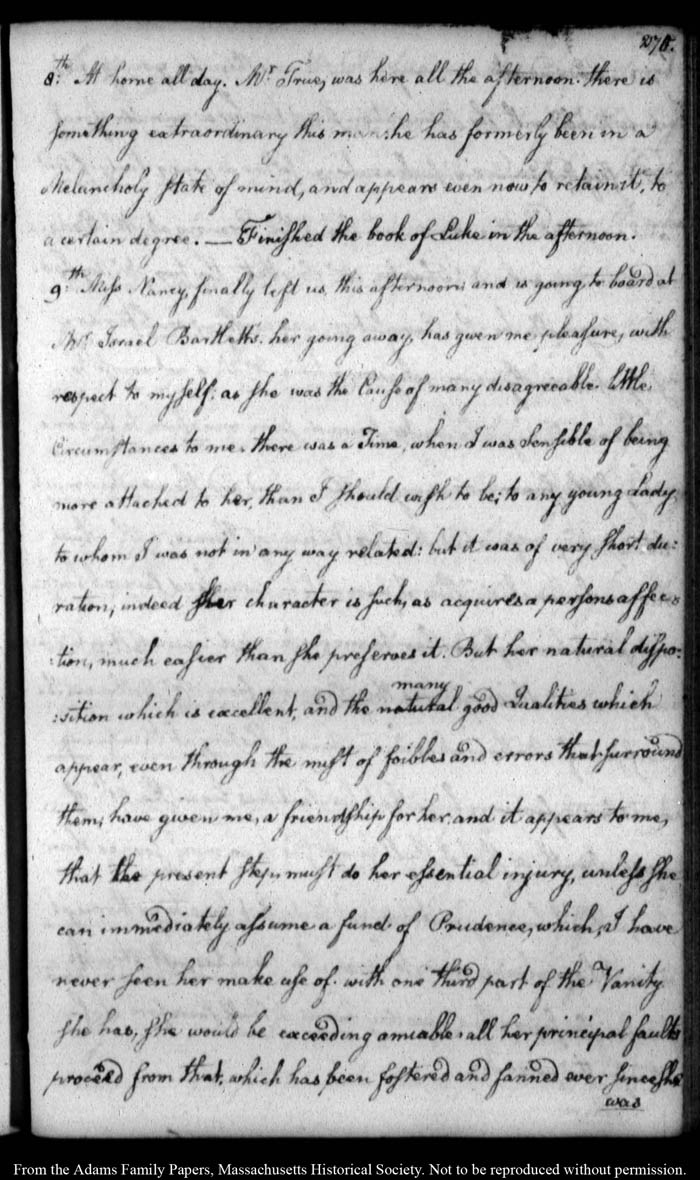 275.
8:th At home all day. Mr. True, was here all the afternoon. there is
something extraordinary this man: he has formerly been in a
Melancholy state of mind, and appears even now to retain it, to
a certain degree. — Finished the book of Luke in the afternoon.
9:th Miss Nancy, finally left us, this afternoon; and is going to board at
Mr. Israel Bartletts. her going away, has given me pleasure, with
respect to myself; as she was the Cause of many disagreeable little,
Circumstances to me. there was a Time, when I was Sensible of being
more attached to her, than I should wish to be; to any young Lady,
to whom I was not in any way related: but it was of very short du:
ration, indeed her character is such, as acquires a persons affec:
:tion, much easier than she preserves it. But her natural dispo:
:sition which is excellent, and the natural many good Qualities which
appear, even through the mist of foibles and errors that surround
them, have given me, a friendship for her, and it appears to me,
that the present step, must do her essential injury, unless she
can immediately assume a fund of Prudence, which, I have
never seen her make use of. with one third part of the Vanity
she has, she would be exceeding amiable: all her principal faults
proceed from that, which has been fostered and fanned ever since she
was
From the Adams Family Papers, Massachusetts Historical Society. Not to be reproduced without permission.